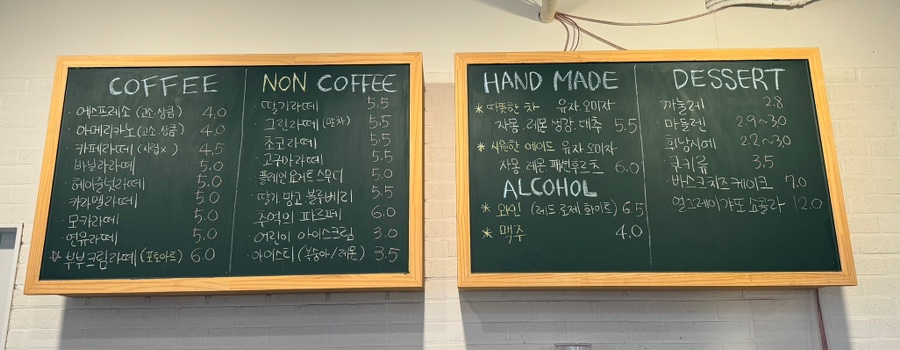 COFFEE
· 에스프레소 (고소.상큼) 4.0
· 아메리카노 (고소.상큼) 4.0
· 카페라떼 (시럽x) 4.5
바닐라라떼 5.0
· 헤이즐넛라떼 5.0
카라멜라떼 5.0
· 모카라떼 5.0
· 연유라떼 5.0
부부크림라떼 (포토아트) 6.0
NON COFFEE
· 딸기라떼 5.5
· 그린라떼 (말차) 5.5
· 초코라떼 5.5
· 고구마라떼 5.5
· 플레인 요거트 스무디 5.0
· 딸기 망고 블루베리 5.5
· 추억의 파르페 6.0
· 어린이 아이스크림 3.0
· 아이스티 (복숭아/레몬) 3.5
HAND MADE
* 따뜻한 차 유자.오미자
자몽.레몬 생강.대추 5.5
* 시원한 에이드 유자 오미자
자몽 레몬 패션후르츠 6.0
ALCOHOL
* 와인 (레드 로제 화이트) 6.5
* 맥주 4.0
DESSERT
까눌레 2.8
마들렌 2.9~3.0
휘낭시에 2.2~3.0
쿠키류 3.5
· 바스크치즈케이크 7.0
얼그레이갸또 쇼콜라 12.0